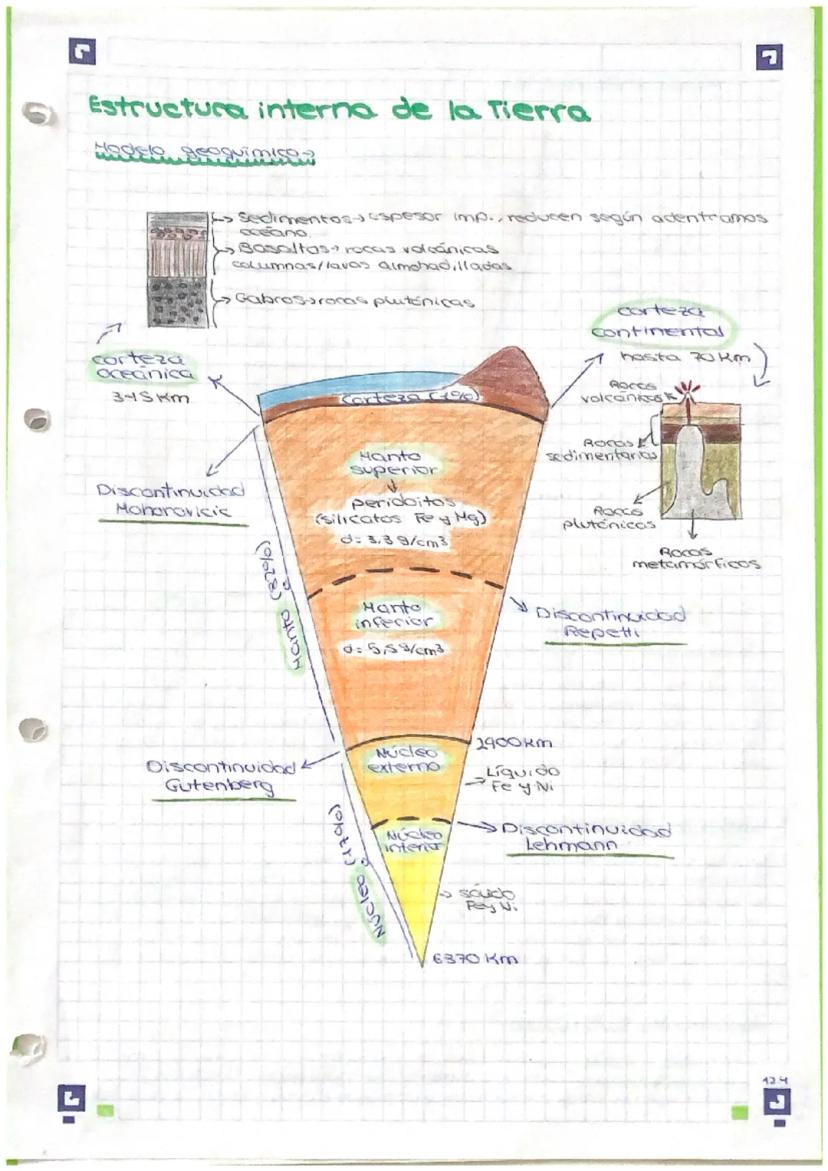 Estructura interna de la Tierra
Modelo geoquímico→
→ Sedimentos→ espesor imp., reducen según adentramos
océano.
→ Basaltos→ rocas volcánicas
columnas/lavas almohadilladas
→ Gabros→rocas plutónicas
corteza
continental
hasta 70 Km
corteza
oceánica
3-15 Km
corteza (1%)
Rocas
volcánicas
Rocas
sedimentarias
Rocas
plutónicas
Rocas
metamórficas
Discontinuidad
Mohorovicic
Manto
superior
peridoitos
(silicatos Fe y Mg)
d= 3,3 g/cm³
Manto (82%)
Manto
inferior
d= 5,5 g/cm³
Discontinuidad
Repetti
2900Km
Discontinuidad
Gutenberg
Núcleo
externo
→ Líquido
Fe y Ni
Núcleo
interior
Discontinuidad
Lehmann
Núcleo (17%)
→ sólido
Fe y Ni
6370 Km